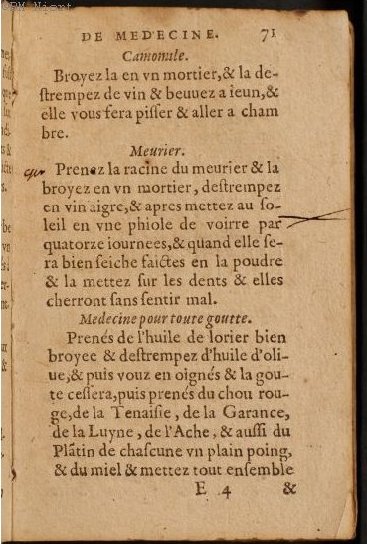 DE MEDECINE. 71
Camomile.
Broyez la en vn mortier,& la de-
ſtrempez de vin & beuuez a ieun,&
elle vous fera piſſer & aller a cham
bre.
Meurier.
Prenez la racine du meurier & la
broyez en vn mortier, deſtrempez
en vin aigre,& apres mettez au ſo-
leil en vne phiole de voirre par
quatorze iournees,& quand elle ſe-
ra bien ſeiche faictes en la poudre
& la mettez ſur les dents & elles
cherront ſans ſentir mal.
Medecine pour toute goutte.
Prenés de l'huile de lorier bien
broyee & deſtrempez d'huile d'oli-
ue,& puis vouz en oignés & la gou-
te ceſſera, puis prenés du chou rou-
ge,de la Tenaiſie, de la Garance,
de la Luyne, de l'Ache, & auſſi du
Plãtin de chaſcune vn plain poing,
& du miel & mettez tout enſemble
E 4 &